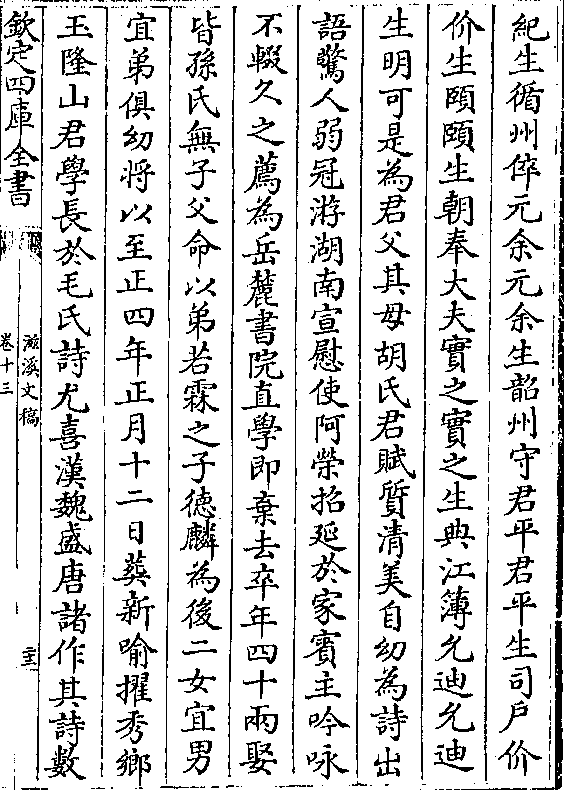 紀生循州倅元余元余生韶州守君平君平生司戶价
价生頤頤生朝奉大夫實之實之生典江簿允迪允迪
生明可是為君父其母胡氏君賦質清美自幼為詩出
語驚人弱冠游湖南宣慰使阿榮招延於家賓主吟咏
不輟久之薦為岳麓書院直學即棄去卒年四十兩娶
皆孫氏無子父命以弟若霖之子德麟為後二女宜男
宜弟俱幼将以至正四年正月十二日葬新喻擢秀鄉
玉隆山君學長於毛氏詩尤喜漢魏盛唐諸作其詩數
欽定四庫全書
滋溪文稿
卷十三